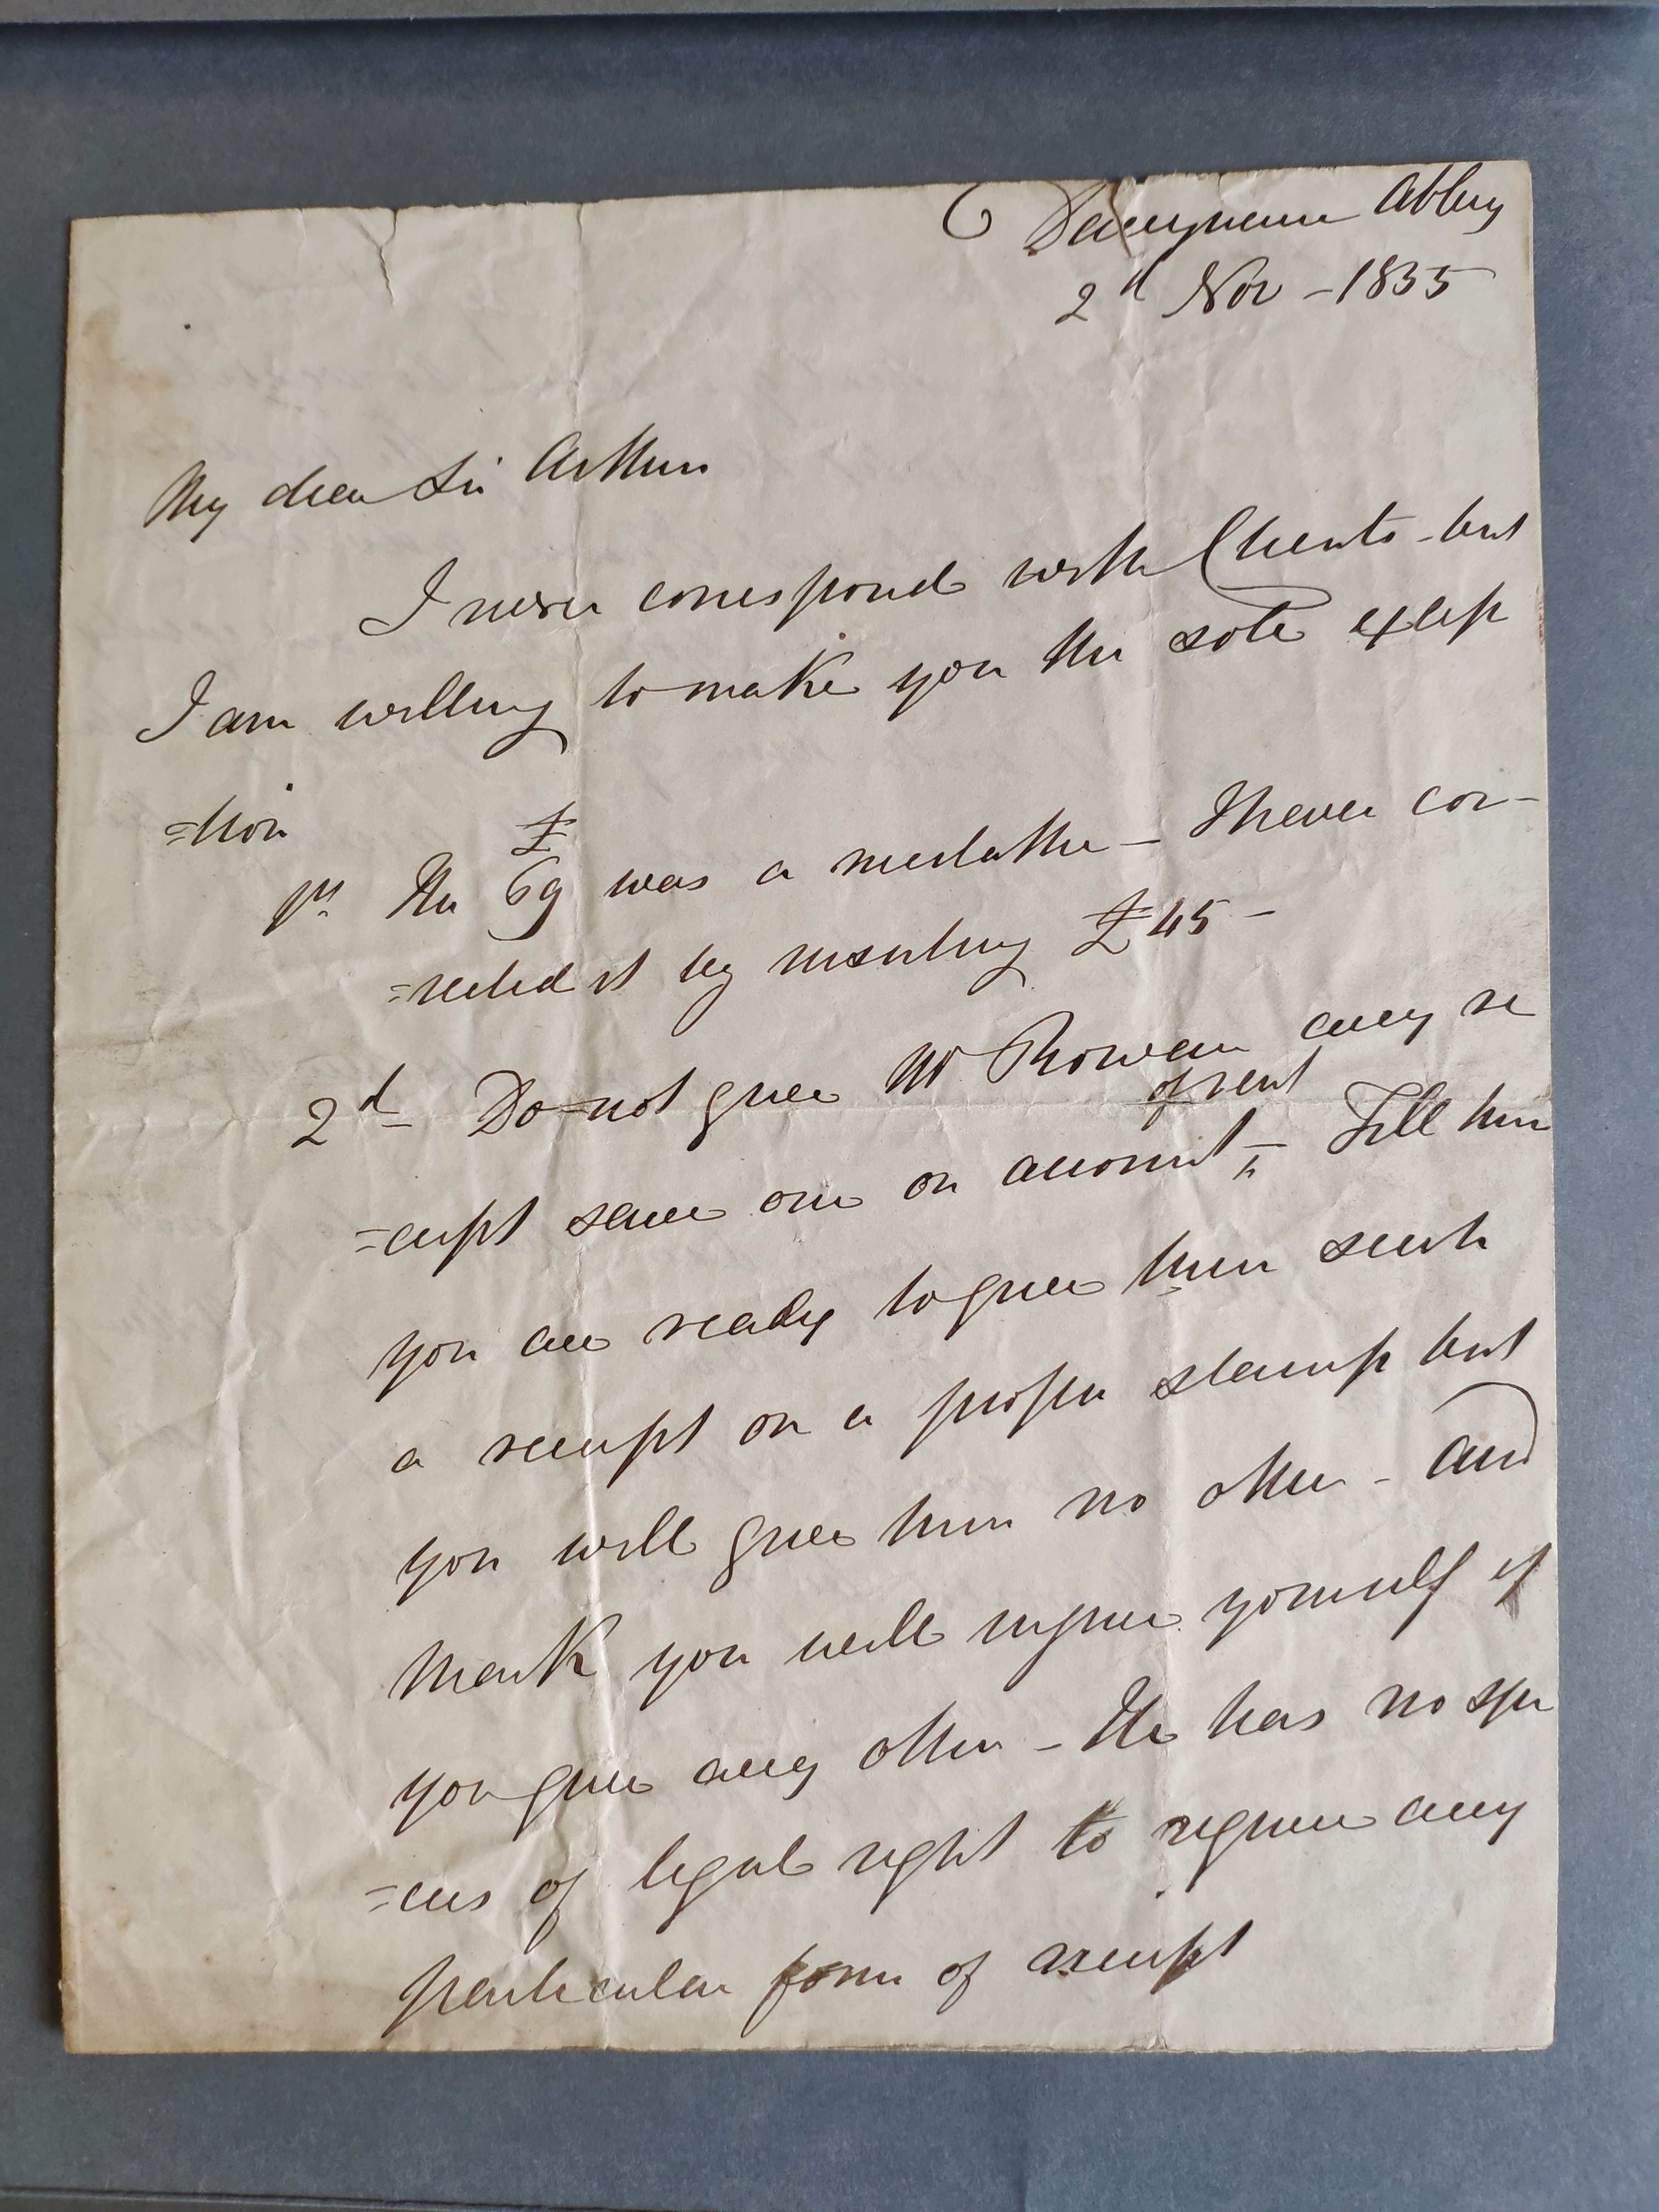 Darrynane Abbey
2d Nov - 1835
My dear Sir Arthur
I never correspond with Clients - but
I am willing to make you the sole excep
=tion
1st The £69 was a mistake - I have cor-
=rected it by inserting £45 -
2d Do not give Mr Rowan any re
=ceipt save one on account of rent - Tell him
you are ready to give him such
a receipt on a proper stamp but
you will give him no other - and
mark you will injure yourself if
you give any other - He has no spe
=cies of legal right to require any
particular form of receipt